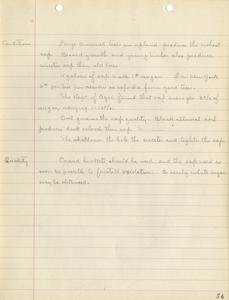 Conditions Large crowned trees on upland produce the richest
sap. Second growth and young timber also produce
sweeter sap than old trees.
4 gallons of sap make 1# sugar. In New York
5# per tree per season is considered good trees.
The Dept of Agri. found that sap averages 2% of
sugar, varying
Soil governs the sap quality. Black alluvial soil
produces dark colored thin sap.
The shallower the hole the sweeter and lighter the sap.
Quality Covered buckets should be used, and the sap used as
soon as possible to forestall oxidation. A nearly white sugar
may be obtained.
56